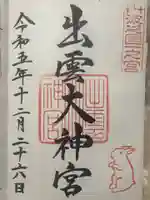 出雲大神宮
令和五年十二月二十六日